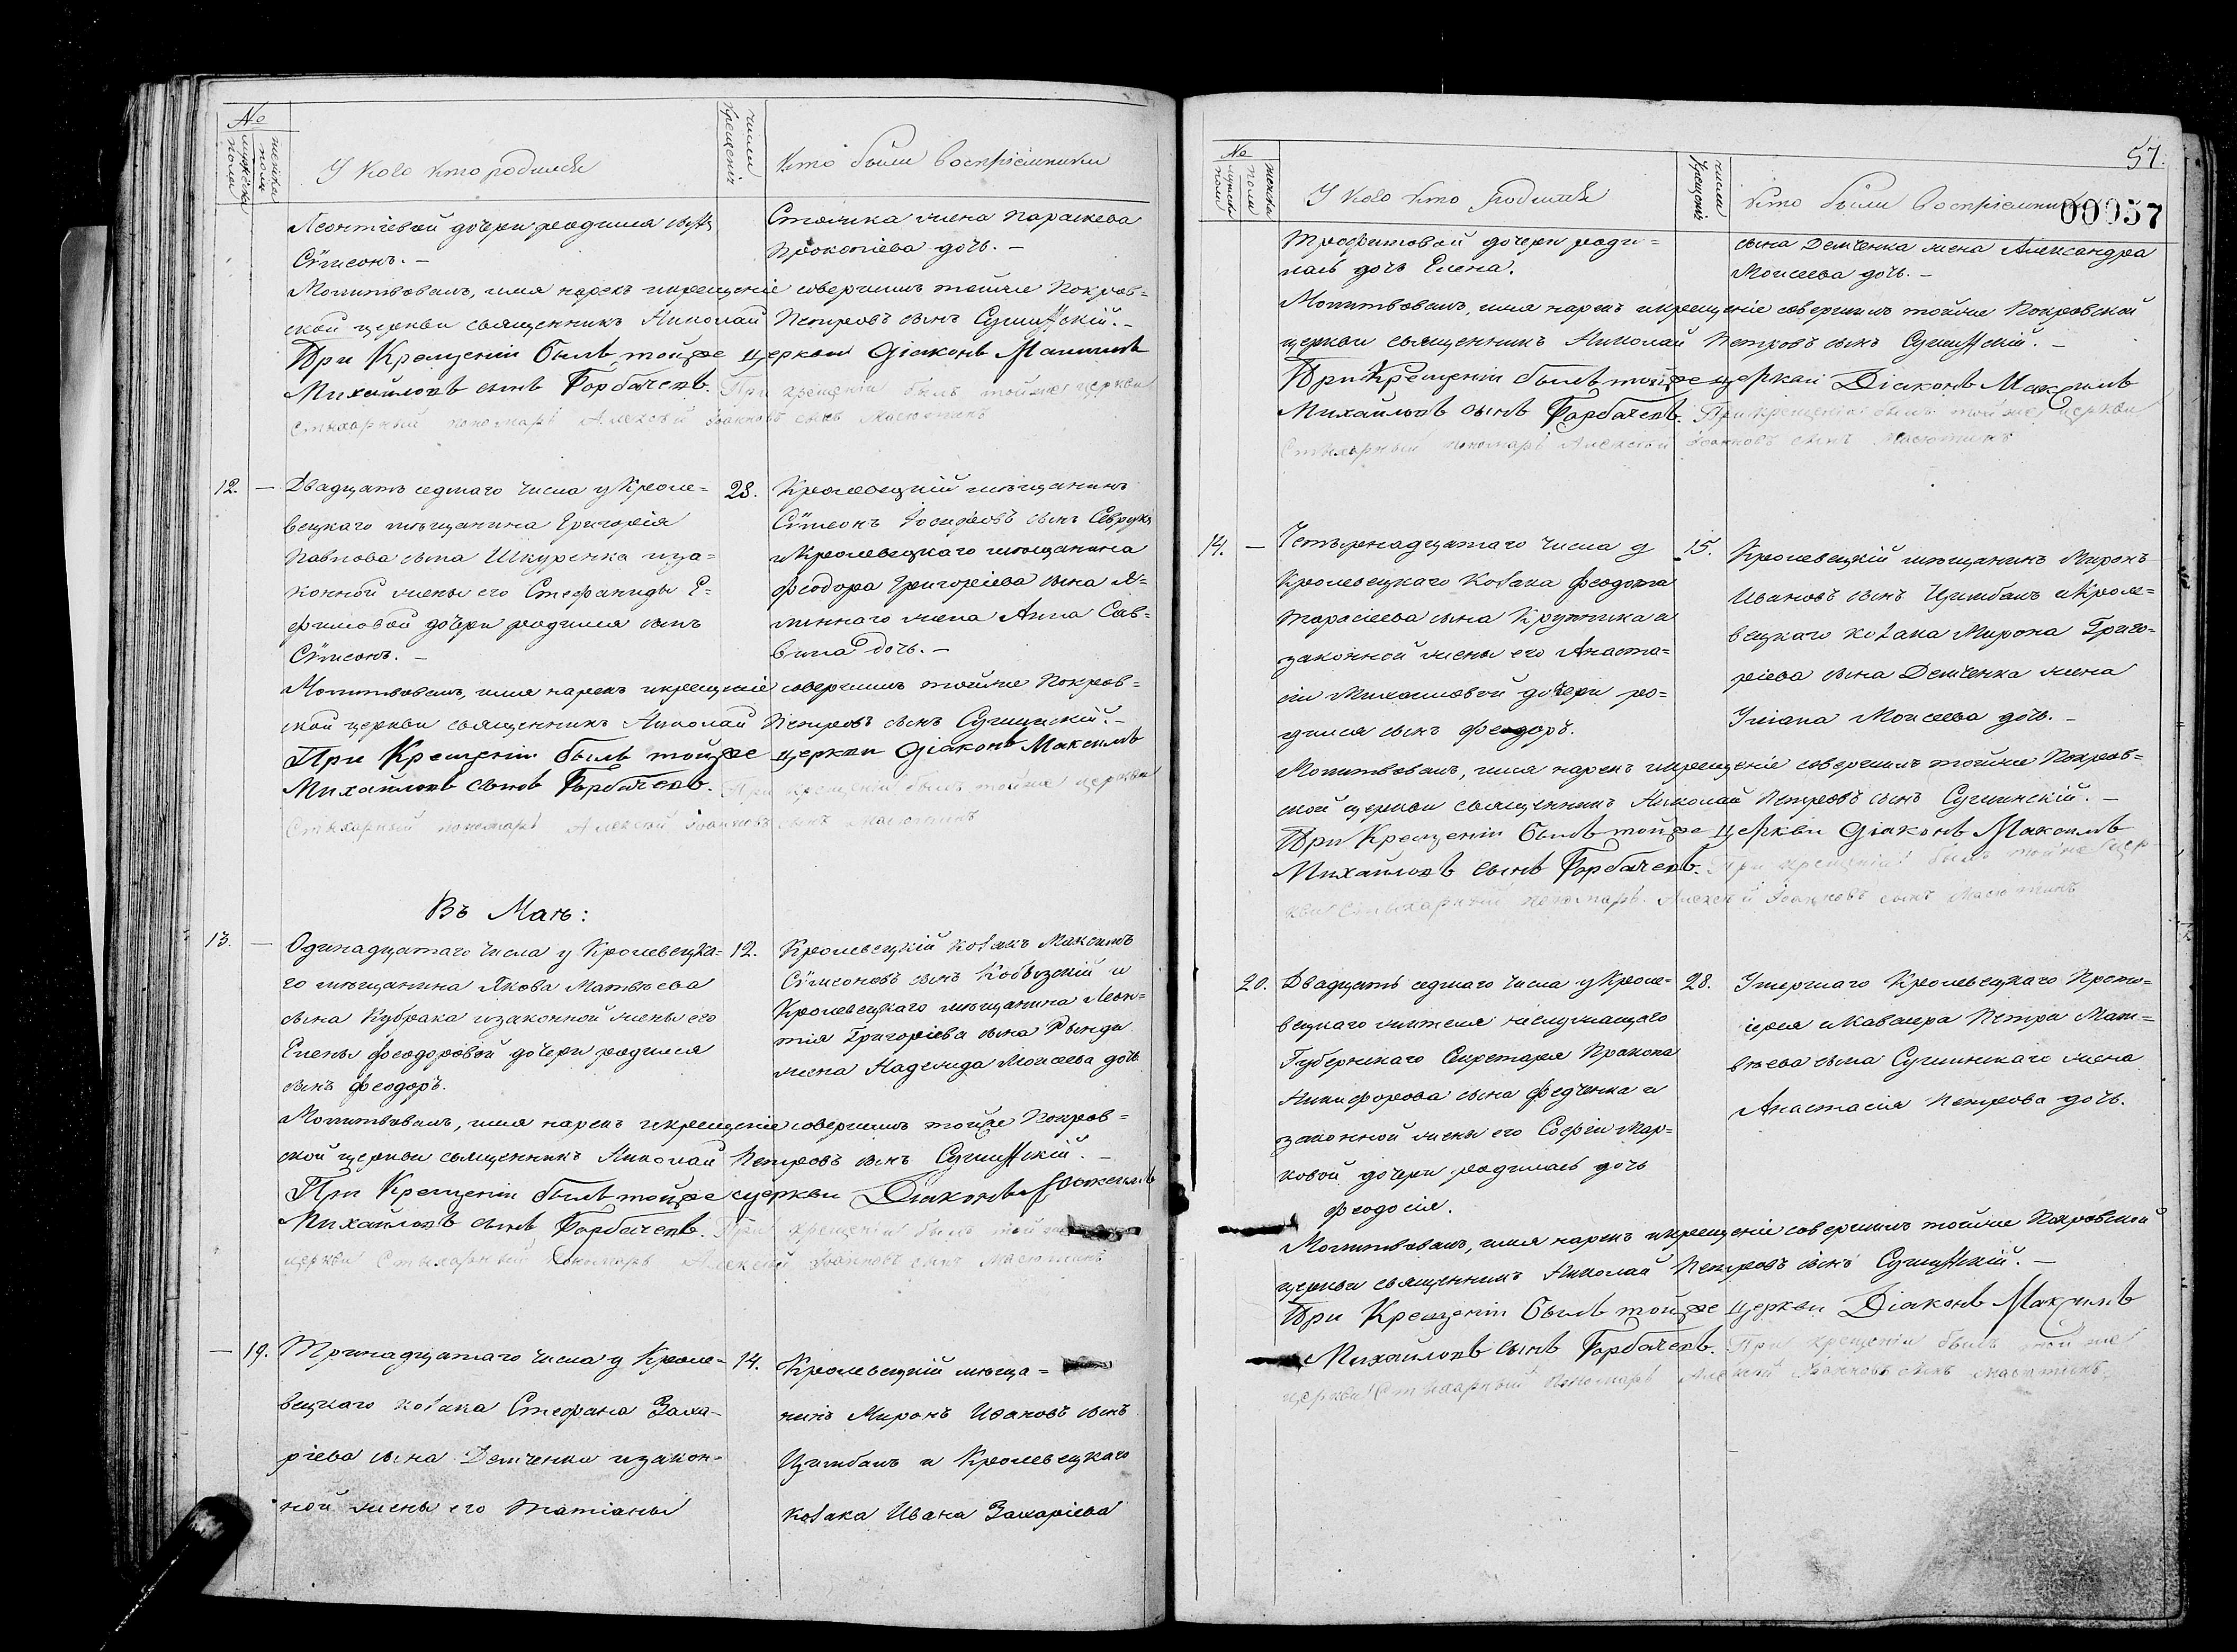 №
мужеска пола
женска пола
У кого кто родился
числа крещенія
Кто были воспріемники
Леонтіевой дочери родился сынъ
Сѵмеонъ. —
Столика жена Параскева
Прокопіева дочь. —
Молитвовалъ, имя нарекъ и крещеніе совершилъ тойже Покров=
ской церкви священникъ Николай Петровъ сынъ Сущинскій. —
При Крещеніи былъ тойже церкви Діаконъ Максимъ
Михайловъ сынъ Горбачевъ. При крещеніи былъ тойже церкви
Стихарный пономарь Алексѣй Іоанновъ сынъ Масютинъ
12. — Двадцать седмаго числа у Кроле=
вецкаго мѣщанина Григорія
Павлова сына Шкуренка и за=
конной жены его Стефаниды Е=
фимовой дочери родился сынъ
Сѵмеонъ. —
28. Кролевецкій мѣщанинъ
Сѵмеонъ Іосифовъ сынъ Севрукъ
и Кролевецкаго мѣщанина
Феодора Григоріева сына Я=
минаго жена Анна Сав=
вина дочь. —
Молитвовалъ, имя нарекъ и крещеніе совершилъ тойже Покров=
ской церкви священникъ Николай Петровъ сынъ Сущинскій. —
При Крещеніи былъ тойже церкви Діаконъ Максимъ
Михайловъ сынъ Горбачевъ. При крещеніи былъ тойже церкви
Стихарный пономарь Алексѣй Іоанновъ сынъ Масютинъ
Въ Маѣ:
13. — Одинадцатаго числа у Кролевецка=
го мѣщанина Якова Матвѣева
сына Кубрака и законной жены его
Елены Феодоровой дочери родился
сынъ Феодоръ.
12. Кролевецкій козакъ Максимъ
Сѵмеоновъ сынъ Кобызскій и
Кролевецкаго мѣщанина Леон=
тія Григоріева сына Рынди
жена Надежда Моисеева дочь
Молитвовалъ, имя нарекъ и крещеніе совершилъ тойже Покров=
ской церкви священникъ Николай Петровъ сынъ Сущинскій. —
При Крещеніи былъ тойже церкви Діаконъ Максимъ
Михайловъ сынъ Горбачевъ. При крещеніи былъ тойже
церкви Стихарный пономарь Алексѣй Іоанновъ сынъ Масютинъ
— 19. Тринадцатаго числа у Кроле=
вецкаго козака Стефана Заха=
ріева сына Демченка и закон=
ной жены его Татіаны
14. Кролевецкій мѣща=
нинъ Миронъ Ивановъ сынъ
Цимбалъ и Кролевецкаго
козака Ивана Захаріева
57.
00057
№
мужеска пола
женска пола
У кого кто родился
числа крещенія
Кто были воспріемники
Трофимовой дочери роди=
лась дочь Елена.
сына Демченка жена Александра
Моисеева дочь. —
Молитвовалъ, имя нарекъ и крещеніе совершилъ тойже Покровской
церкви священникъ Николай Петровъ сынъ Сущинскій. —
При Крещеніи былъ тойже церкви Діаконъ Максимъ
Михайловъ сынъ Горбачевъ. При крещеніи былъ тойже церкви
Стихарный пономарь Алексѣй Іоанновъ сынъ Масютинъ
14. — Четырнадцатаго числа у
Кролевецкаго Козака Феодота
Тарасіева сына Кружника и
законной жены его Анаста=
сіи Михаиловой дочери ро=
дился сынъ Феодоръ.
15. Кролевецкій мѣщанинъ Миронъ
Ивановъ сынъ Цимбалъ и Кроле=
вецкаго козака Мирона Григо=
ріева сына Демченка жена
Уліана Моисеева дочь. —
Молитвовалъ, имя нарекъ и крещеніе совершилъ тойже Покров=
ской церкви священникъ Николай Петровъ сынъ Сущинскій. —
При Крещеніи былъ тойже церкви Діаконъ Максимъ
Михайловъ сынъ Горбачевъ. При крещеніи былъ тойже цер=
кви Стихарный пономарь Алексѣй Іоанновъ сынъ Масютинъ
20. Двадцать седмаго числа у Кроле=
вецкаго жителя неслужащаго
Губернскаго Секретаря Прокопа
Никифорова сына Федченка и
законной жены его Софіи Мар=
ковой дочери родилась дочь
Феодосія.
28. Умершаго Кролевецкаго Прото=
іерея и Кавалера Петра Мат=
вѣева сына Сущинскаго жена
Анастасія Петрова дочь.
Молитвовалъ, имя нарекъ и крещеніе совершилъ тойже Покровской
церкви священникъ Николай Петровъ сынъ Сущинскій. —
При Крещеніи былъ тойже церкви Діаконъ Максимъ
Михайловъ сынъ Горбачевъ. При крещеніи былъ тойже
церкви Стихарный пономарь Алексѣй Іоанновъ сынъ Масютинъ.